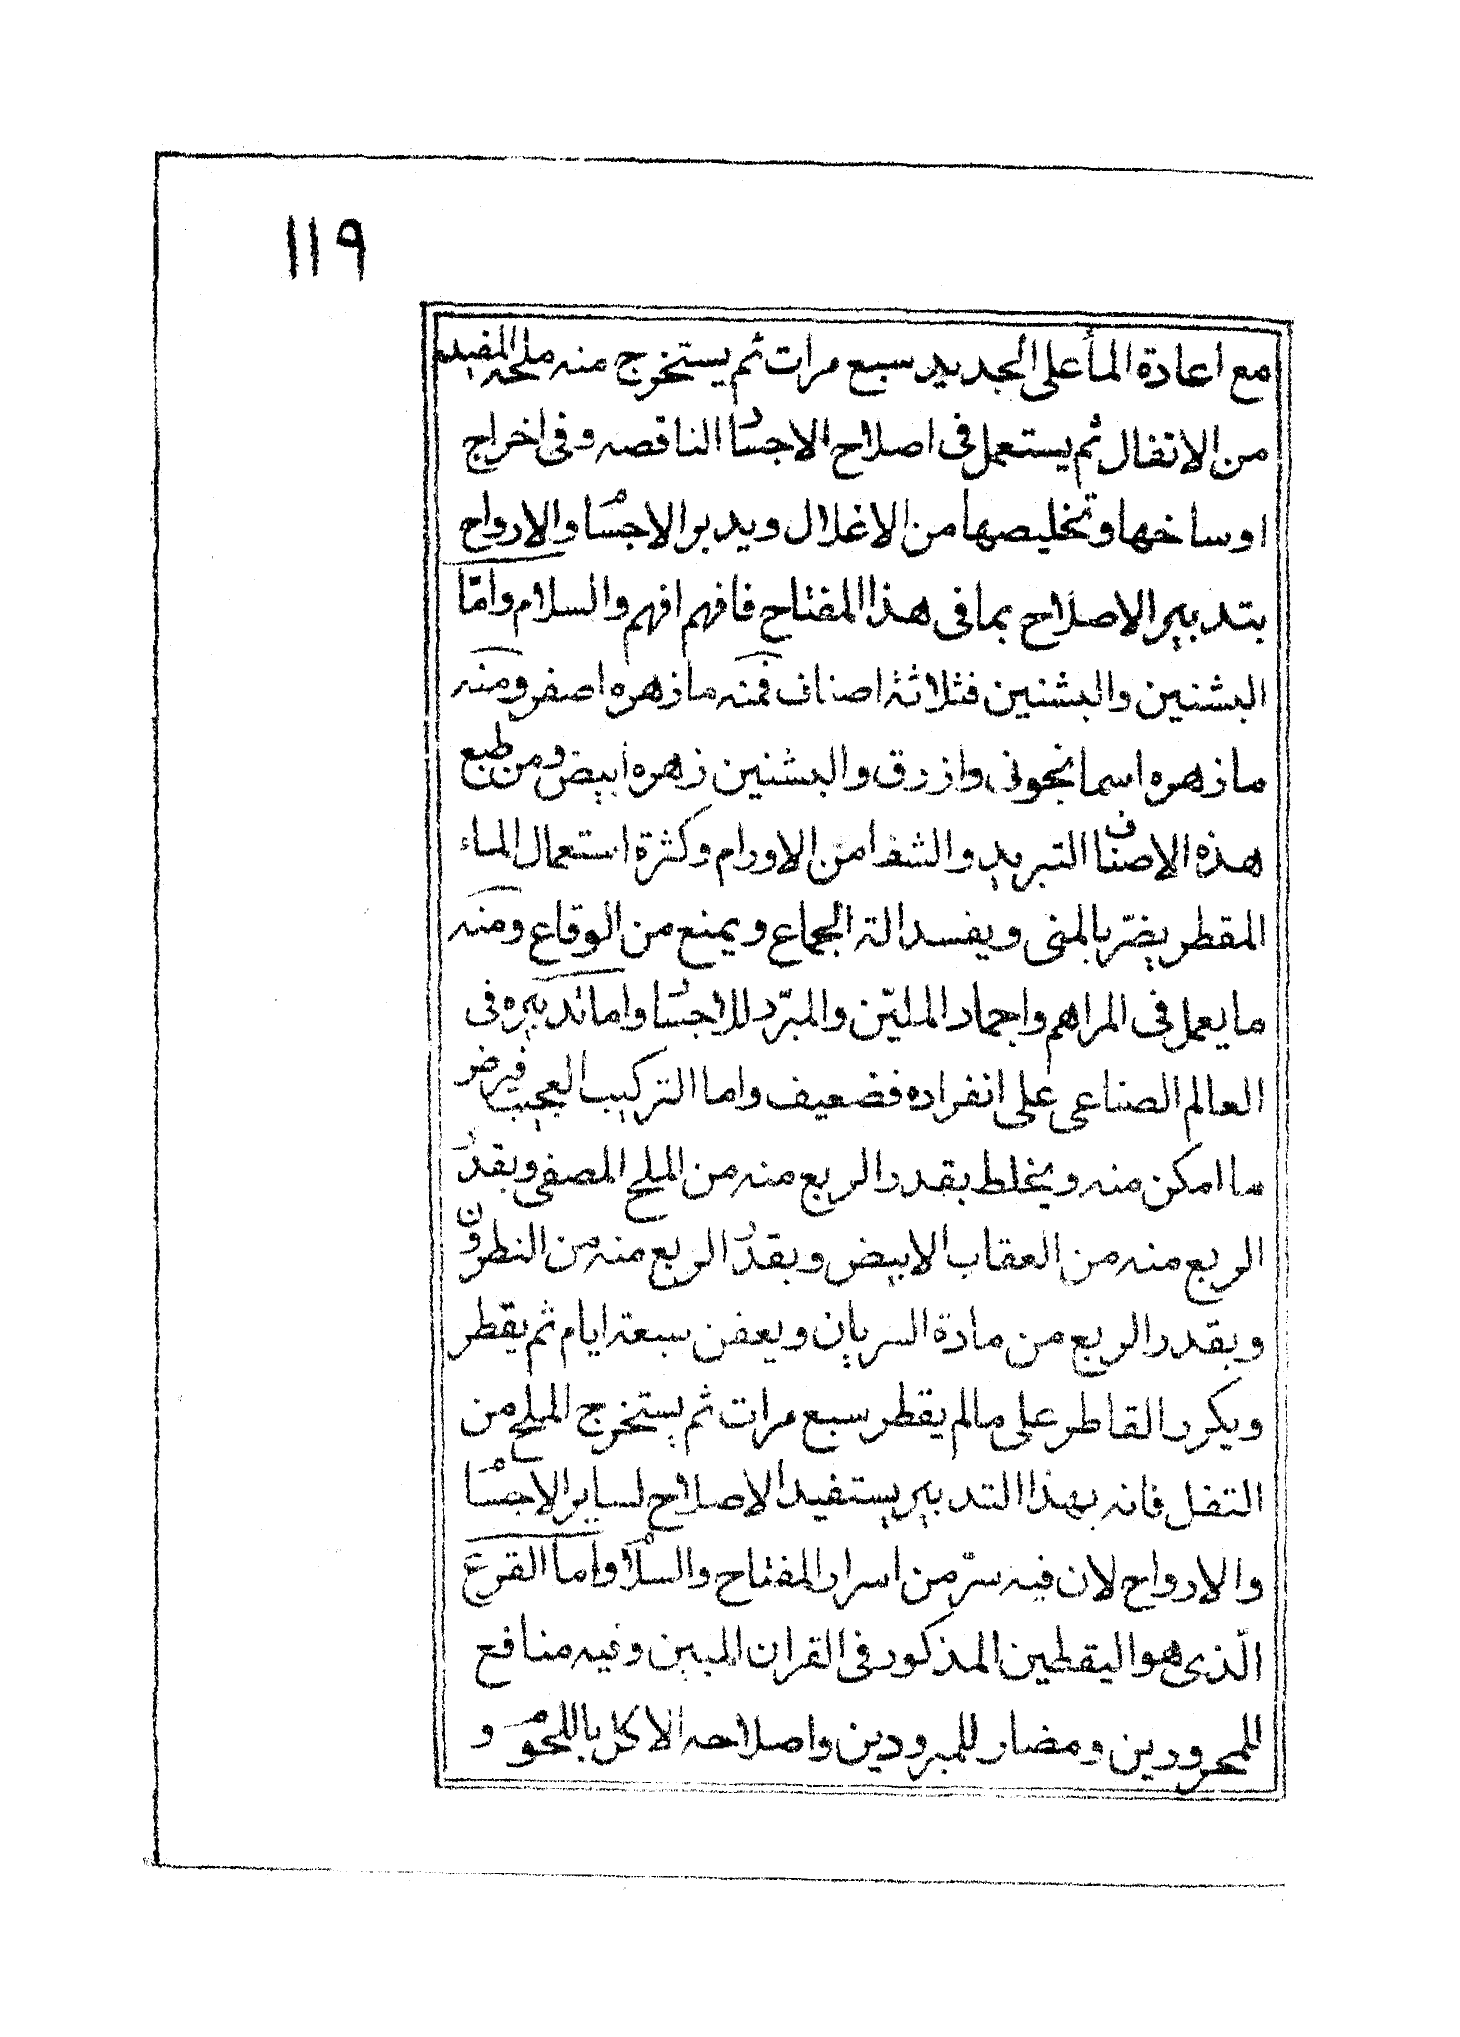 ١١٩
مع اعادة الماء على الجديد سبع مرات ثم يستخرج منه ملحه المفيد
من الاتفال ثم يستعمل فى اصلاح الاجساد الناقصه وفى اخراج
اوساخها وتخليصها من الاغلال ويدبر الاجسام والارواح
بتدبير الاصلاح بما فى هذا المفتاح فافهم افهم والسلام وامّا
البشنين والبشنين فثلاثة اصناف فمنه ما زهره اصفر ومنه
ما زهره اسمانجونى وازرق والبشنين زهره ابيض ومن طبع
هذه الاصناف التبريد والشفا من الاورام وكثرة استعمال الماء
المقطر يضرّ بالمنى ويفسد الة الجماع ويمنع من الوقاع ومنه
ما يعمل فى المراهم واجماد الملتين والمبرّد للاجساد واما تدبيره فى
العالم الصناعى على انفراده فضعيف واما التركيب العجيب فيرض
ما امكن منه ويخلط بقدر الربع منه من الملح المصفى وبقدر
الربع منه من العقاب الابيض وبقدر الربع منه من النطرون
وبقدر الربع من مادة السريان ويعفن سبعة ايام ثم يقطر
ويكرر القاطر على مالم يقطر سبع مرات ثم يستخرج الملح من
التفل فانه بهذا التدبير يستفيد الاصلاح لساير الاجسام
والارواح لان فيه سرّ من اسرار المفتاح والسلام واما القرع
الّذى هو اليقطين المذكور فى القران المبين وفيه منافع
للمحرورين ومضار للمبرودين واصلاحه الاكل باللحوم و